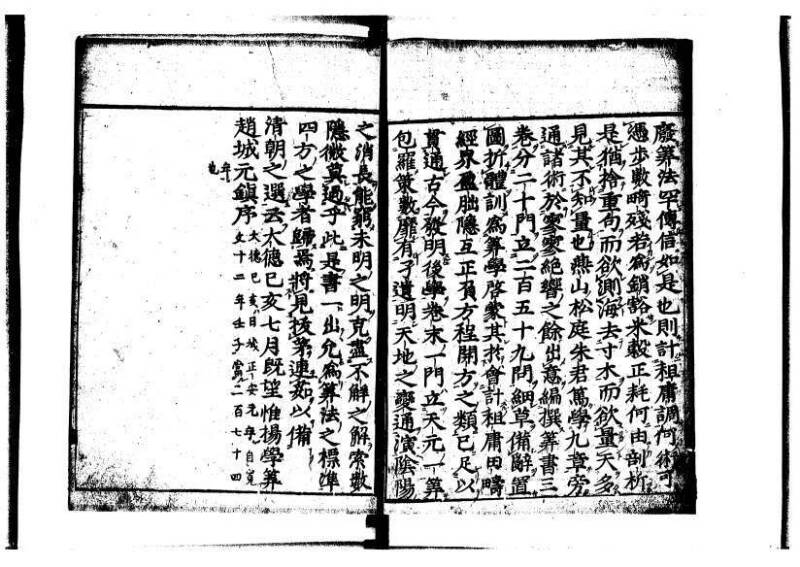 廢筭法罕傳信如是也則計租庸調何術可
憑步數畸殘若爲銷豁米穀正耗何由剖析
是猶捨重而欲測海去寸木而欲量天多
見其不知量也燕山松庭朱君篤學九章旁
通諸術於寥寥絶響之餘出意編撰筭書三
卷分二十門立二百五十九問細草備辭置
圖折體訓爲筭學啓蒙其於會計租庸田疇
經界盈朏隱互正負方程開方之類已足以
貫通古今發明後學卷末一門立天元一筭
包羅策數靡有孑遺明天地之變通演陰陽
之消長能窮未明之明克盡不解之解索數
隱微莫過乎此是書一出允爲筭法之標準
四方之學者歸焉將見拔茅連茹以備
清朝之選云大德己亥七月既望惟揚學筭
趙城元鎮序
大德己亥日域正安元年自
文十二年壬子當二百七十四
年